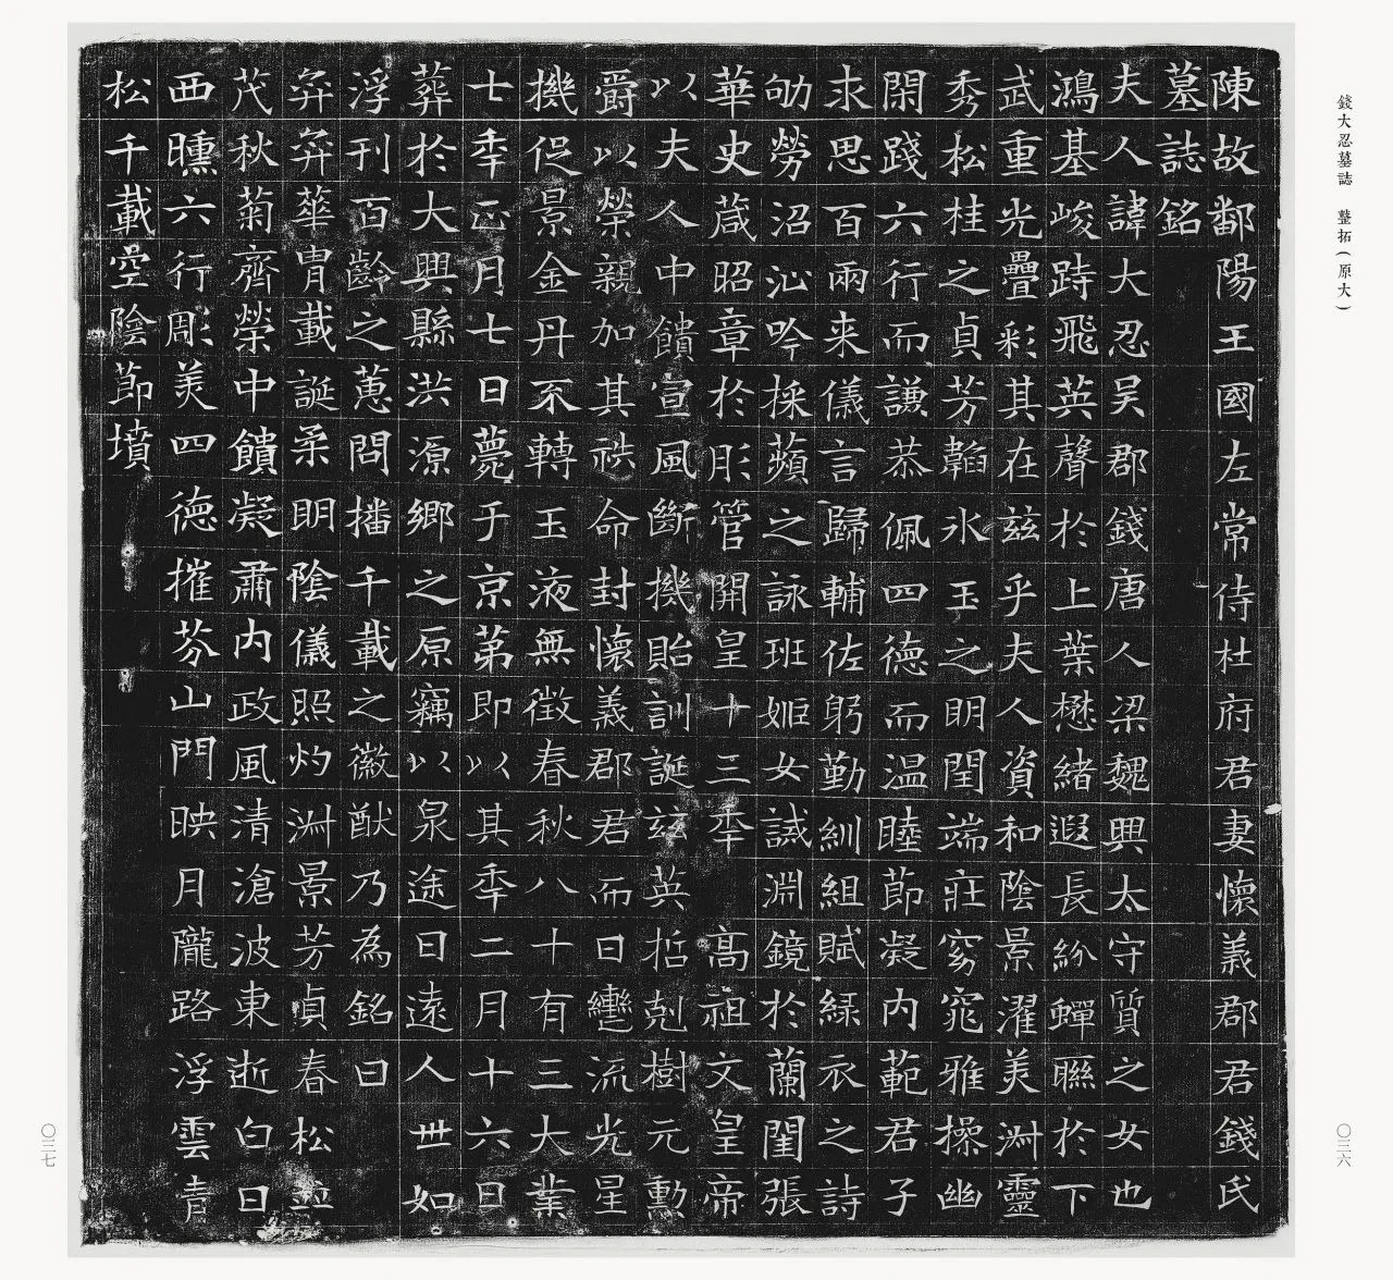 錢大忍墓誌　整拓(原大)
陳故鄱陽王國左常侍杜府君妻懷義郡君錢氏
墓誌銘
夫人諱大忍吴郡錢唐人梁魏興太守質之女也
鴻基峻跱飛英聲於上葉懋緒遐長紛蟬聮於下
武重光疊彩其在兹乎夫人資和陰景濯美淑靈
秀松桂之貞芳韜氷玉之眀閏端莊窈窕雅操幽
閑踐六行而謙恭佩四德而温睦節凝内範君子
求思百兩来儀言歸輔佐躬勤紃組賦緑衣之詩
劬勞沼沁吟採蘋之詠班姬女誡淵鏡於蘭閨張
華史箴昭章於彤管開皇十三秊　高祖文皇帝
以夫人中饋宣風斷機貽訓誕兹英哲剋樹元勳
爵以榮親加其袟命封懷義郡君而日轡流光星
機促景金丹不轉玉液無徵春秋八十有三大業
七秊正月七日薨于京第即以其秊二月十六日
葬於大興縣洪源鄉之原竊以泉途日遠人世如
浮刊百齡之蕙問播千載之徽猷乃為銘曰
弈弈華胄載誕柔眀陰儀照灼淑景芳貞春松並
茂秋菊齊榮中饋凝肅内政風清滄波東逝白日
西曛六行彫美四德摧芬山門映月隴路浮雲青
松千載空陰節墳
〇三六
〇三七